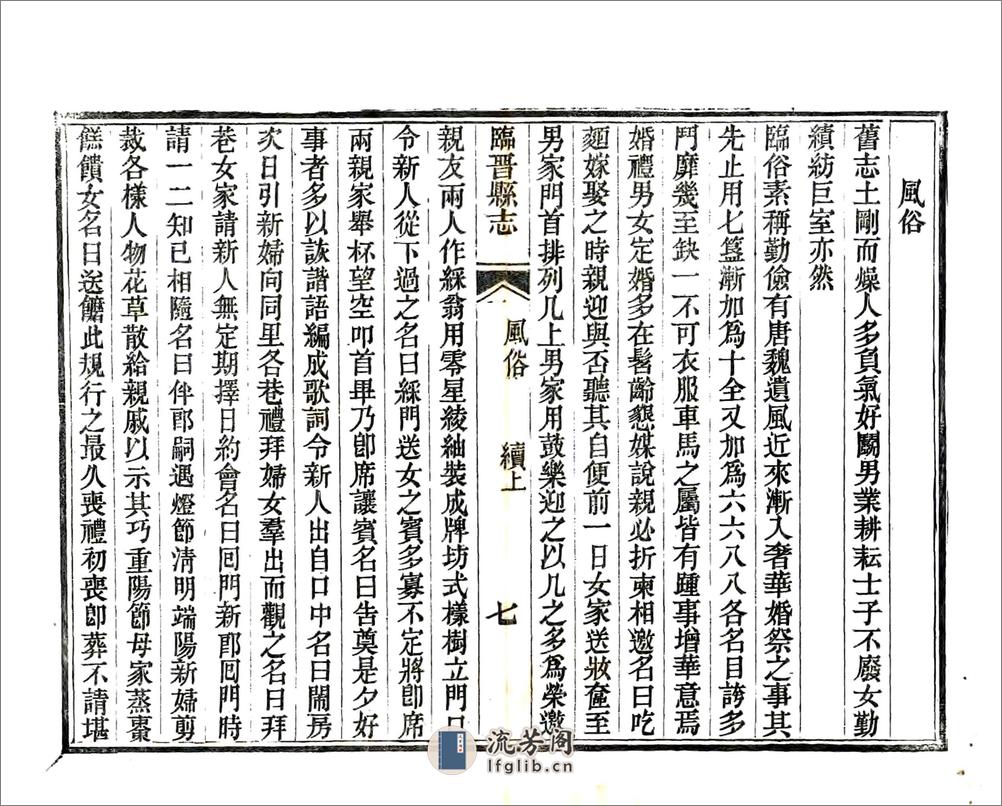 風俗
舊志土剛而燥人多負氣好鬬男業耕耘士子不廢女勤
績紡巨室亦然
臨俗素稱勤儉有唐魏遺風近來漸入奢華婚祭之事其
先止用七簋漸加爲十全又加爲六六八八各名目誇多
鬥靡幾至缺一不可衣服車馬之屬皆有踵事增華意焉
婚禮男女定婚多在髫齡懇媒說親必折柬相邀名曰吃
麵嫁娶之時親迎與否聽其自便前一日女家送妝奩至
男家門首排列几上男家用鼓樂迎之以几之多爲榮邀
臨晋縣志
風俗
續上
七
親友兩人作綵翁用零星綾紬裝成牌坊式樣樹立門口
令新人從下過之名曰綵門送女之賓多寡不定將卽席
兩親家舉杯望空叩首畢乃卽席讓賓名曰告奠是夕好
事者多以詼諧語編成歌詞令新人出自口中名曰閙房
次日引新婦向同里各巷禮拜婦女羣出而觀之名曰拜
巷女家請新人無定期擇日約會名曰囘門新郎囘門時
請一二知己相隨名曰伴郎嗣遇燈節淸明端陽新婦剪
裁各樣人物花草散給親戚以示其巧重陽節母家蒸棗
餻饋女名曰送簷此規行之最久喪禮初喪卽葬不請堪
流芳阁
lfglib.cn